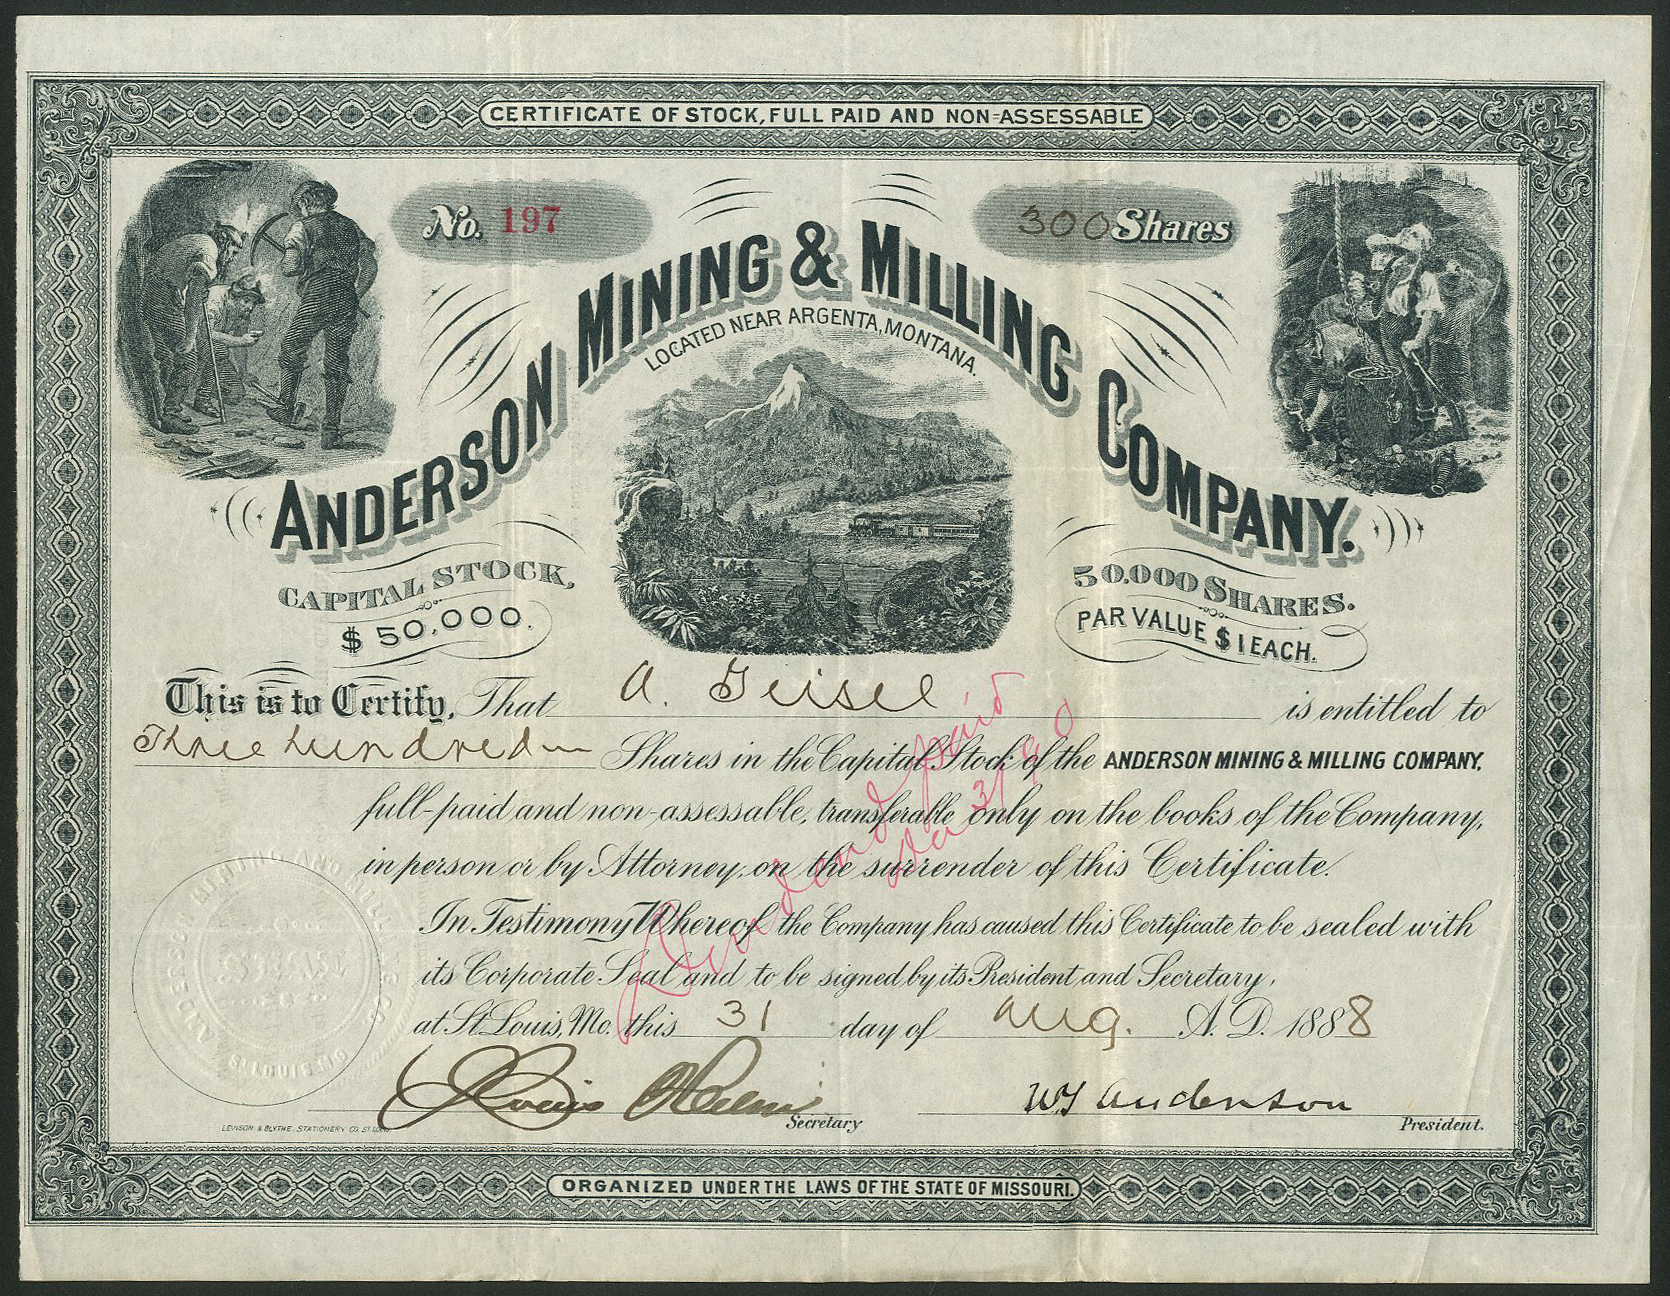 CERTIFICATE OF STOCK, FULL PAID AND NON-ASSESSABLE
No. 197
300 Shares
ANDERSON MINING & MILLING COMPANY.
LOCATED NEAR ARGENTA, MONTANA.
CAPITAL STOCK, $50,000.
50.000 SHARES. PAR VALUE $1 EACH.
This is to Certify, That A. Geisel is entitled to
Three hundred Shares in the Capital Stock of the ANDERSON MINING & MILLING COMPANY,
full-paid and non-assessable, transferable only on the books of the Company,
in person or by Attorney on the surrender of this Certificate.
In Testimony Whereof the Company has caused this Certificate to be sealed with
its Corporate Seal and to be signed by its President and Secretary,
at St. Louis, Mo. this 31 day of Aug. A. D. 1888
Louis
Secretary
Anderson
President.
LEWSON & BLYTHE, STATIONERY CO. ST. LOUIS
ANDERSON MINING AND MILLING CO.
ST LOUIS MO
ORGANIZED UNDER THE LAWS OF THE STATE OF MISSOURI.